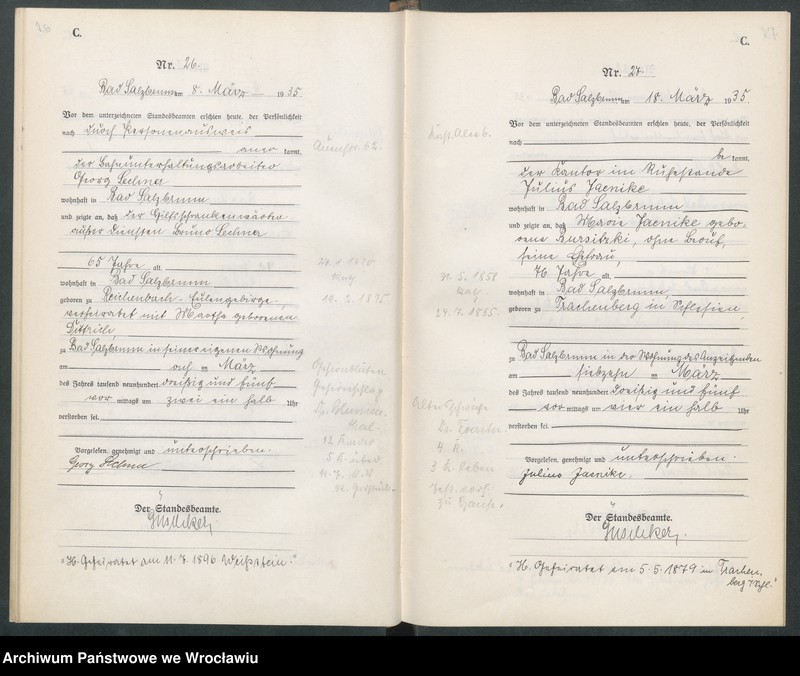 C.
Nr. 26.
Bad Salzbrunn am 8. März 1935.
Vor dem unterzeichneten Standesbeamten erschien heute, der Persönlichkeit
nach durch Personenausweis
aner kannt,
der Bahnunterhaltungsarbeiter
Georg Lechner
wohnhaft in Bad Salzbrunn
und zeigte an, daß der Hilfsschrankenwärter
außer Diensten Bruno Lechner
65 Jahre alt
wohnhaft in Bad Salzbrunn
geboren zu Reichenbach-Eulengebirge,
verheiratet mit Martha geborenen
Dittrich,
zu Bad Salzbrunn in seiner eigenen Wohnung
am acht en März
des Jahres tausend neunhundert dreißig und fünf
vor mittags um zwei ein halb Uhr
verstorben sei.
Vorgelesen, genehmigt und unterschrieben.
Georg
Der Standesbeamte.
"H. Geheiratet am 11. 7. 1896 Weißstein."
28. 1. 1870
12 Kinder
5 k. über
C.
Nr. 27
Bad Salzbrunn am 18. März 1935.
Vor dem unterzeichneten Standesbeamten erschien heute, der Persönlichkeit
nach
be kannt,
der Kantor im Ruhestande
Julius Jaenike
wohnhaft in Bad Salzbrunn
und zeigte an, daß Marie Jaenike gebo-
rene Bursitzki, ohne Beruf,
seine Ehefrau,
76 Jahre alt,
wohnhaft in Bad Salzbrunn,
geboren zu Trachenberg in Schlesien,
zu Bad Salzbrunn in der Wohnung des Anzeigenden
am siebzehn en März
des Jahres tausend neunhundert dreißig und fünf
vor mittags um vier ein halb Uhr
verstorben sei.
Vorgelesen, genehmigt und unterschrieben.
Julius Jaenike.
Der Standesbeamte.
"H. Geheiratet am 5. 5. 1879 in Trachen-
berg
31. 5. 1858
kath.
24. 7. 1855
Altersschwäche
4 k.
3 k. leben
zu Hause.
Archiwum Państwowe we Wrocławiu